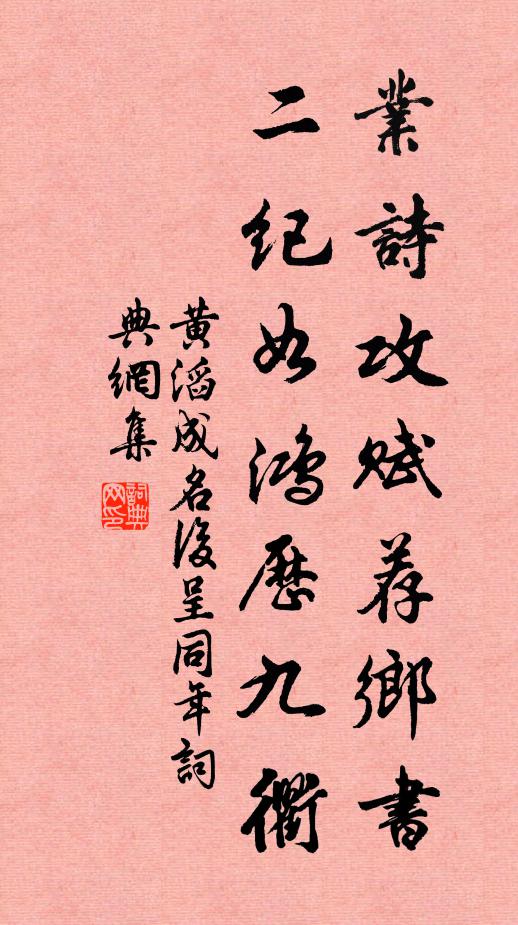 業詩攻赋荐鄉書
二紀如鴻歷九衢
黄滔成名後呈同年詞
典網集
詞典
网印